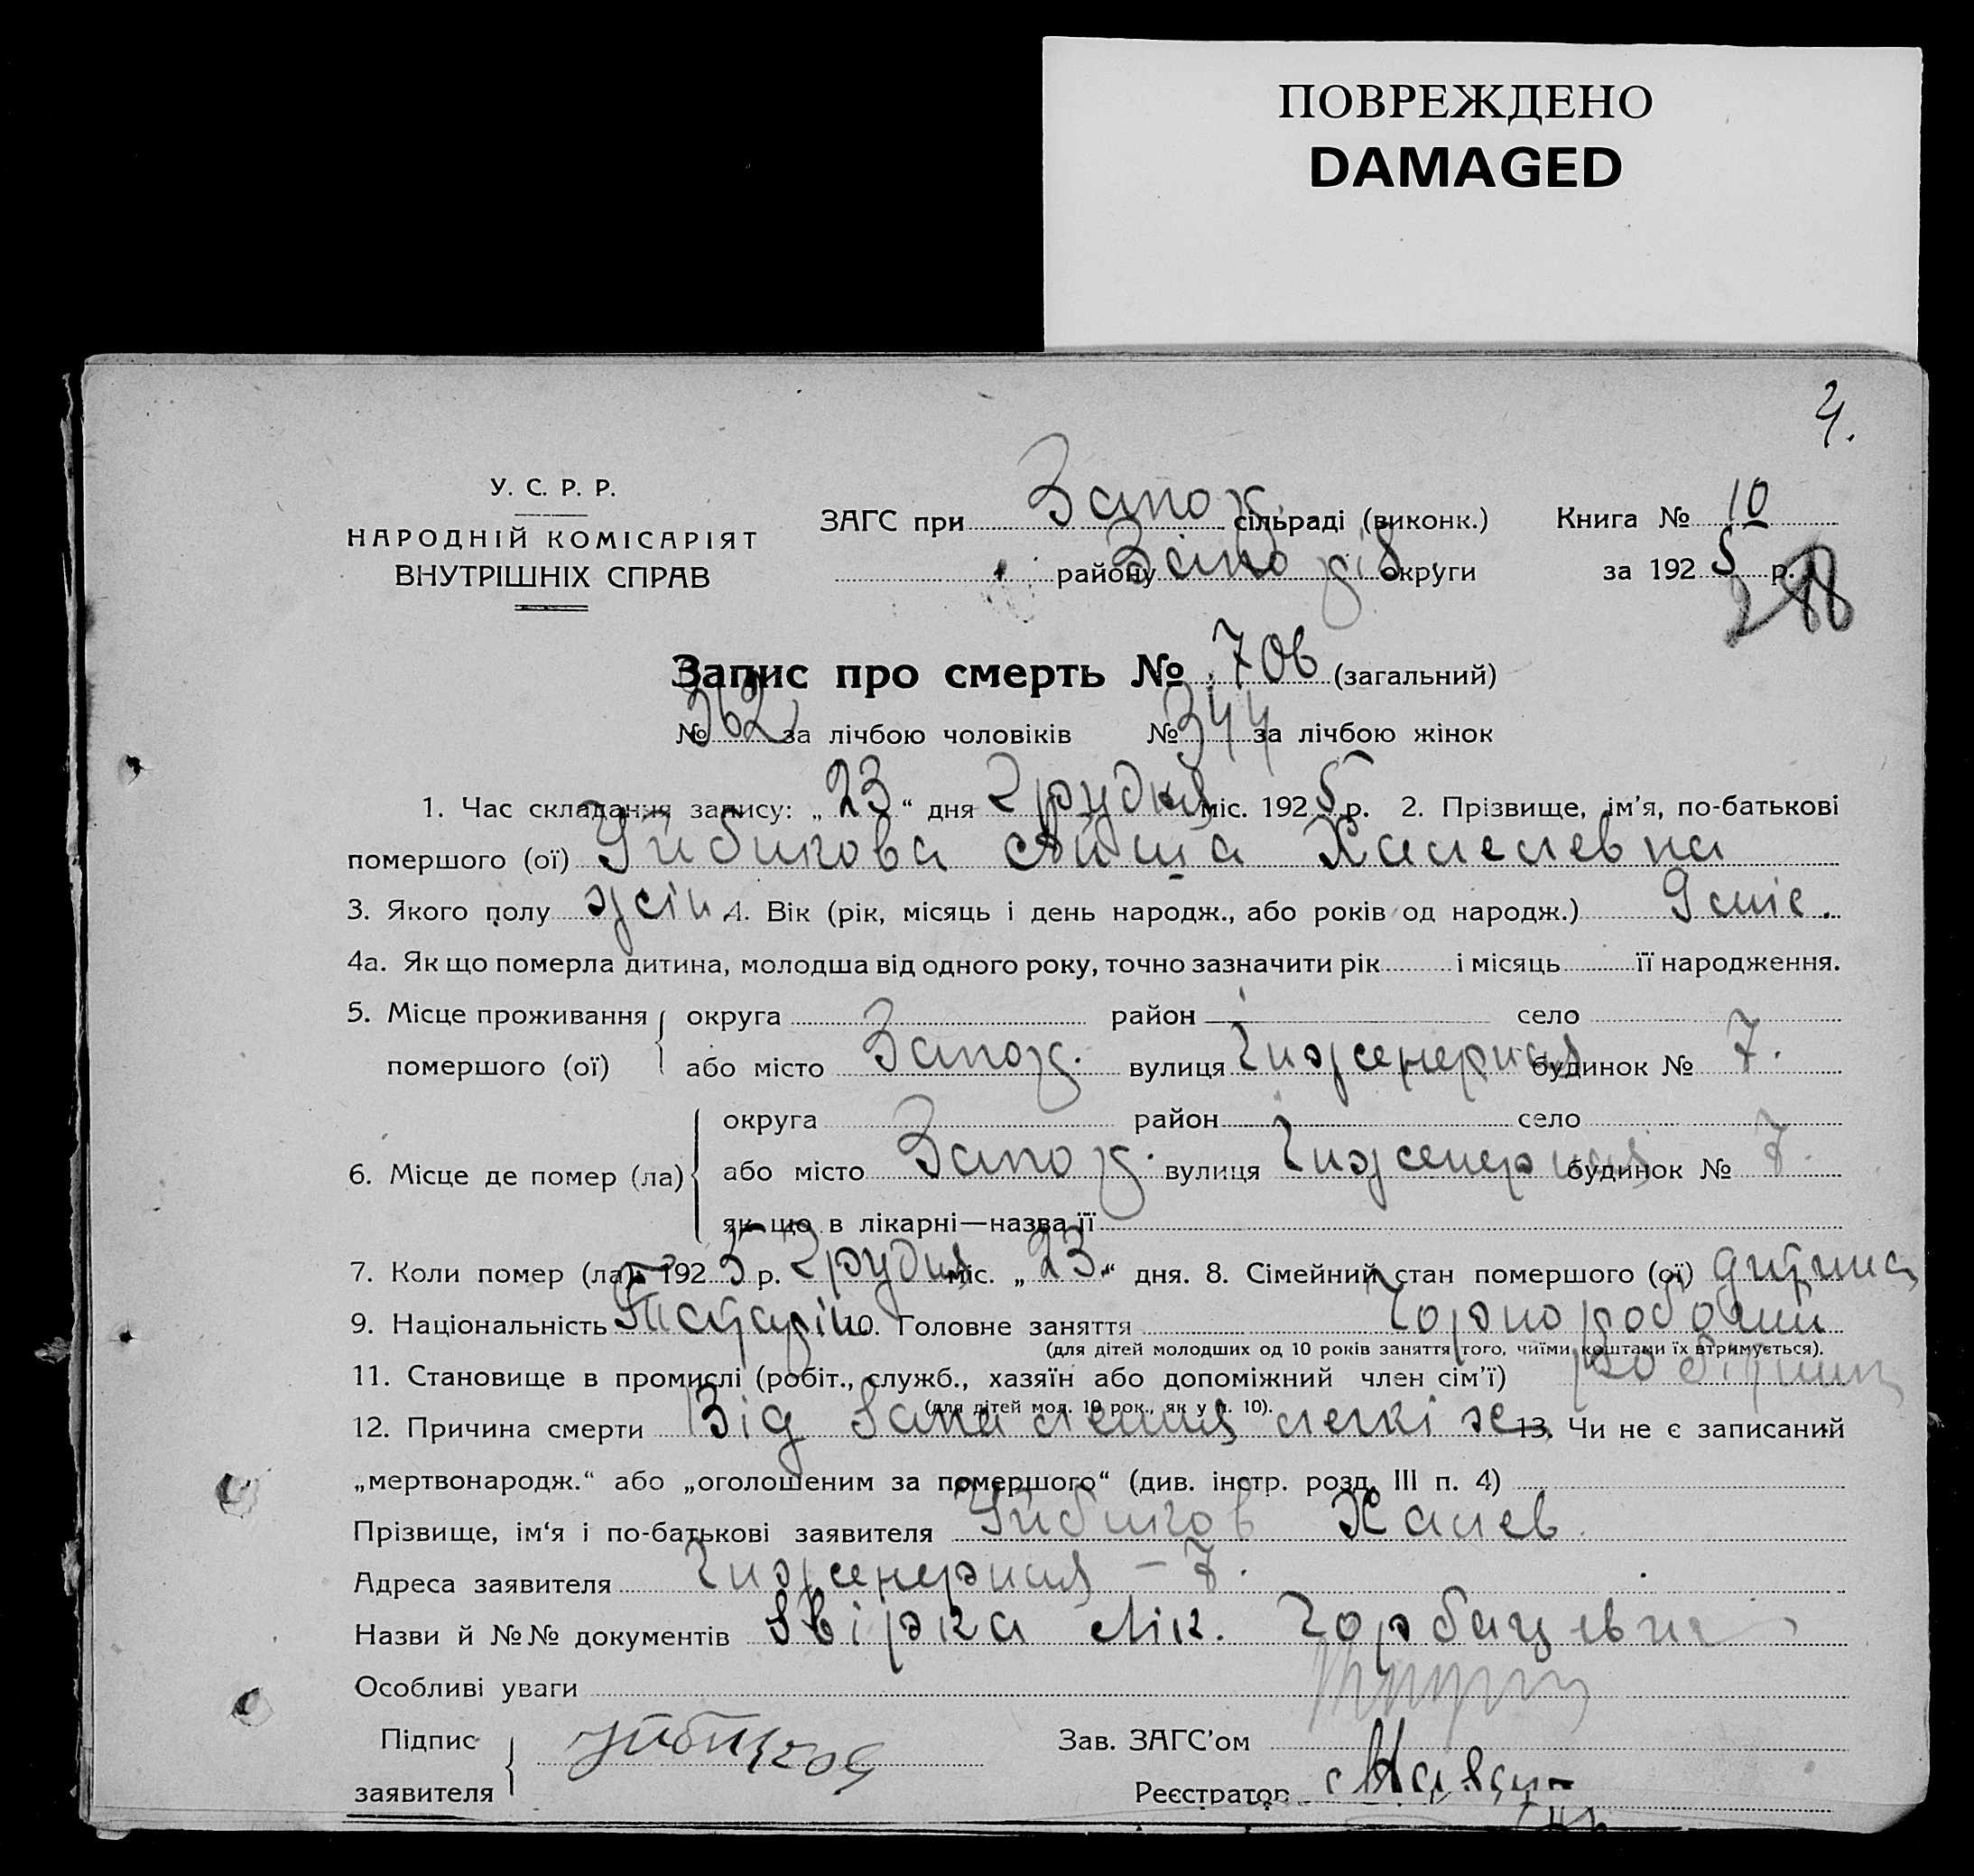 ПОВРЕЖДЕНО
DAMAGED
4.
У. С. Р. Р.
НАРОДНІЙ КОМІСАРІЯТ
ВНУТРІШНІХ СПРАВ
ЗАГС при Запож. сільраді (виконк.) Книга № 10
району Запоріз. округи за 1925 р.
Запис про смерть № 706 (загальний)
№ 362 за лічбою чоловіків № 344 за лічбою жінок
1. Час складання запису: „23“ дня Грудня міс. 1925 р. 2. Прізвище, ім’я, по-батькові
помершого (ої) Уйбикова Айша Халелевна
3. Якого полу жін 4. Вік (рік, місяць і день народж., або років од народж.) 9 міс.
4а. Як що померла дитина, молодша від одного року, точно зазначити рік і місяць її народження.
5. Місце проживання помершого (ої) округа район село
або місто Запож. вулиця Інженерная будинок № 7.
6. Місце де помер (ла) округа район село
або місто Запож. вулиця Інженерная будинок № 7.
як що в лікарні—назва її
7. Коли помер (ла): 1925 р. Грудня міс. „23“ дня. 8. Сімейний стан помершого (ої) дитина
9. Національність Татарін 10. Головне заняття Чорноробочий
(для дітей молодших од 10 років заняття того, чиїми коштами їх втримується).
11. Становище в промислі (робіт., служб., хазяїн або допоміжний член сім’ї) робітник
(для дітей мол. 10 рок., як у п. 10).
12. Причина смерти Від запалення легкіх 13. Чи не є записаний
„мертвонародж.“ або „оголошеним за помершого“ (див. інстр. розд. III п. 4)
Прізвище, ім‘я і по-батькові заявителя Уйбиков Халев.
Адреса заявителя Інженерная – 7.
Назви й №№ документів Звірка Лік. Горбацевич
Особливі уваги
Підпис заявителя Уйбиков Зав. ЗАГС’ом
Реєстратор